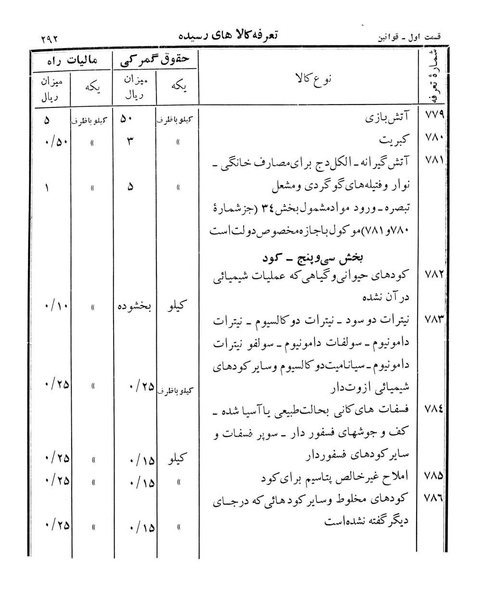 قسمت اول ـ قوانین تعرفه کالا های رسیده ۲۹۲
شمارهٔ تعرفه نوع کالا حقوق گمرکی مالیات راه
یکه میزان ریال یکه میزان ریال
۷۷۹ آتش‌بازی کیلو با ظرف ۵۰ کیلو با ظرف ۵
۷۸۰ کبریت » ۳ » ۰/۵۰
۷۸۱ آتش‌گیرانه ـ الکل‌دج برای مصارف خانگی ـ
نوار و فتیله‌های گوگردی و مشعل » ۵ » ۱
تبصره ـ ورود مواد مشمول بخش ۳۴ (جز شمارهٔ
۷۸۰ و ۷۸۱) موکول با جازه مخصوص دولت است
بخش سی و پنج ـ کود
۷۸۲ کودهای حیوانی و گیاهی که عملیات شیمیائی
در آن نشده کیلو بخشوده » ۰/۱۰
۷۸۳ نیترات دوسود ـ نیترات دو کالسیوم ـ نیترات
دامونیوم ـ سولفات دامونیوم ـ سولفو نیترات
دامونیوم ـ سیانامیت دو کالسیوم و سایر کودهای
شیمیائی ازوت‌دار کیلو با ظرف ۰/۲۵ » ۰/۲۵
۷۸۴ فسفات های کانی بحالت طبیعی یا آسیا شده ـ
کف و جوشهای فسفور دار ـ سوپر فسفات و
سایر کودهای فسفوردار کیلو ۰/۱۵ » ۰/۲۵
۷۸۵ املاح غیر خالص پتاسیم برای کود » ۰/۱۵ » ۰/۲۵
۷۸۶ کودهای مخلوط و سایر کودهائی که درجای
دیگر گفته نشده است » ۰/۱۵ » ۰/۲۵